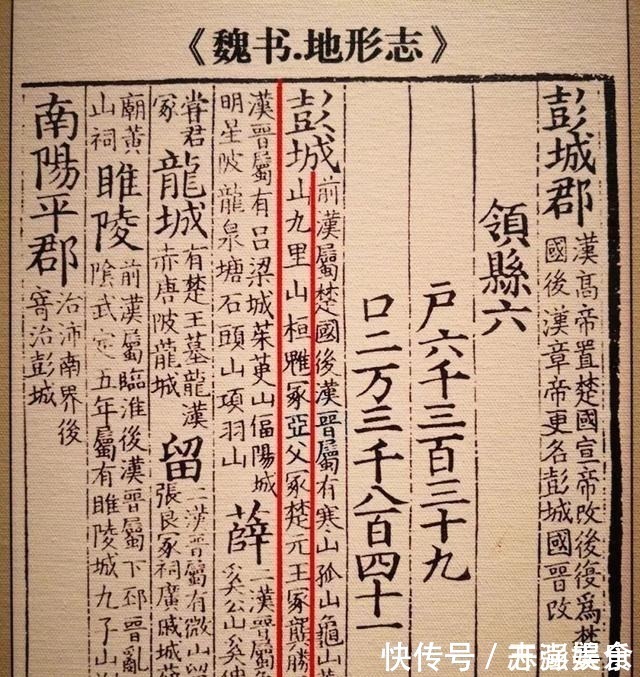 《魏书.地形志》
彭城郡
漢高帝置楚國宣帝改後復為楚
國後漢章帝更名彭城國晉改
領縣六
戶六千三百三十九
口二万三千八百四十一
彭城
前漢屬楚國後漢晉屬有寒山孤山龜山
山九里山桓魋冢亞父冢楚元王冢龔勝
漢晉屬有呂梁城茱萸山偪陽城
明星陂龍泉塘石頭山項羽山
薛
二漢晉屬
奚公山奚仲
嘗君
冢
龍城
有楚王墓龍漢
赤唐陂龍城
留
二漢晉屬有微山留
張良冢祠廣戚城
廟黃
山祠
睢陵
前漢屬臨淮後漢晉屬下邳晉亂
陰武定五年屬有睢陵城九子山
南陽平郡
治沛南界後
寄治彭城
快传号／